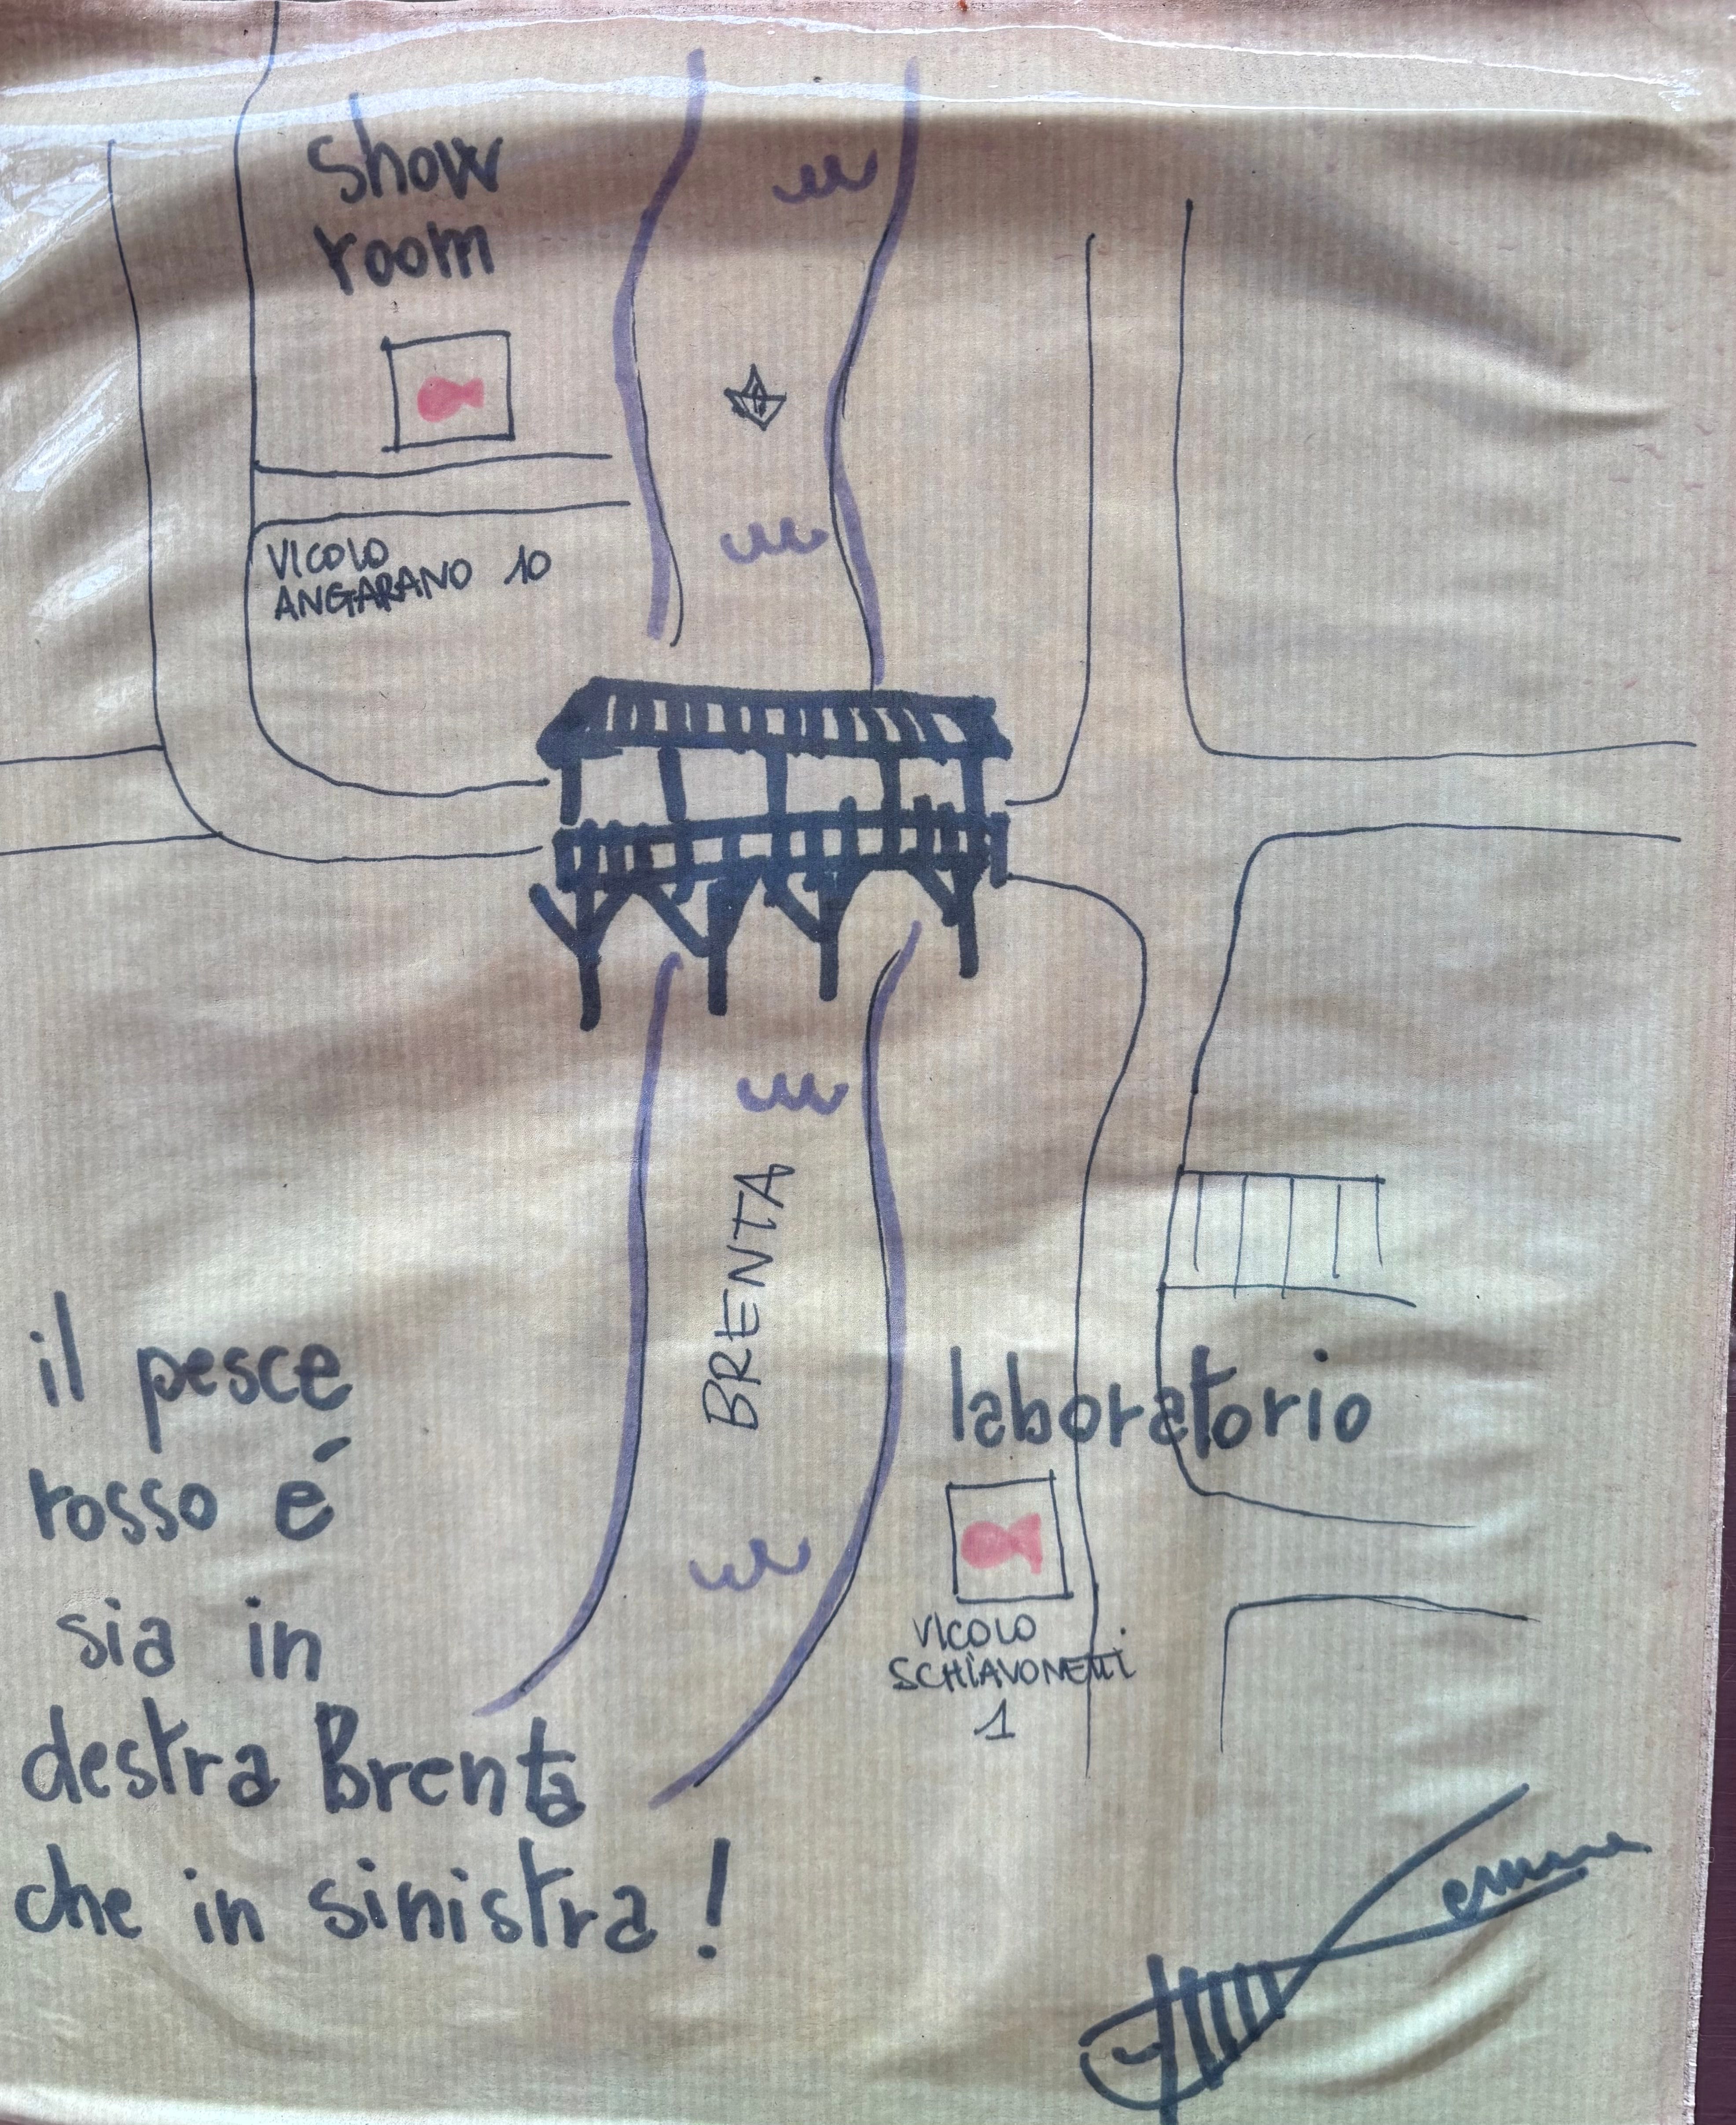 show
room
VICOLO
ANGARANO 10
BRENTA
laboratorio
VICOLO
SCHIAVONETTI
1
il pesce
rosso é
sia in
destra Brenta
che in sinistra!